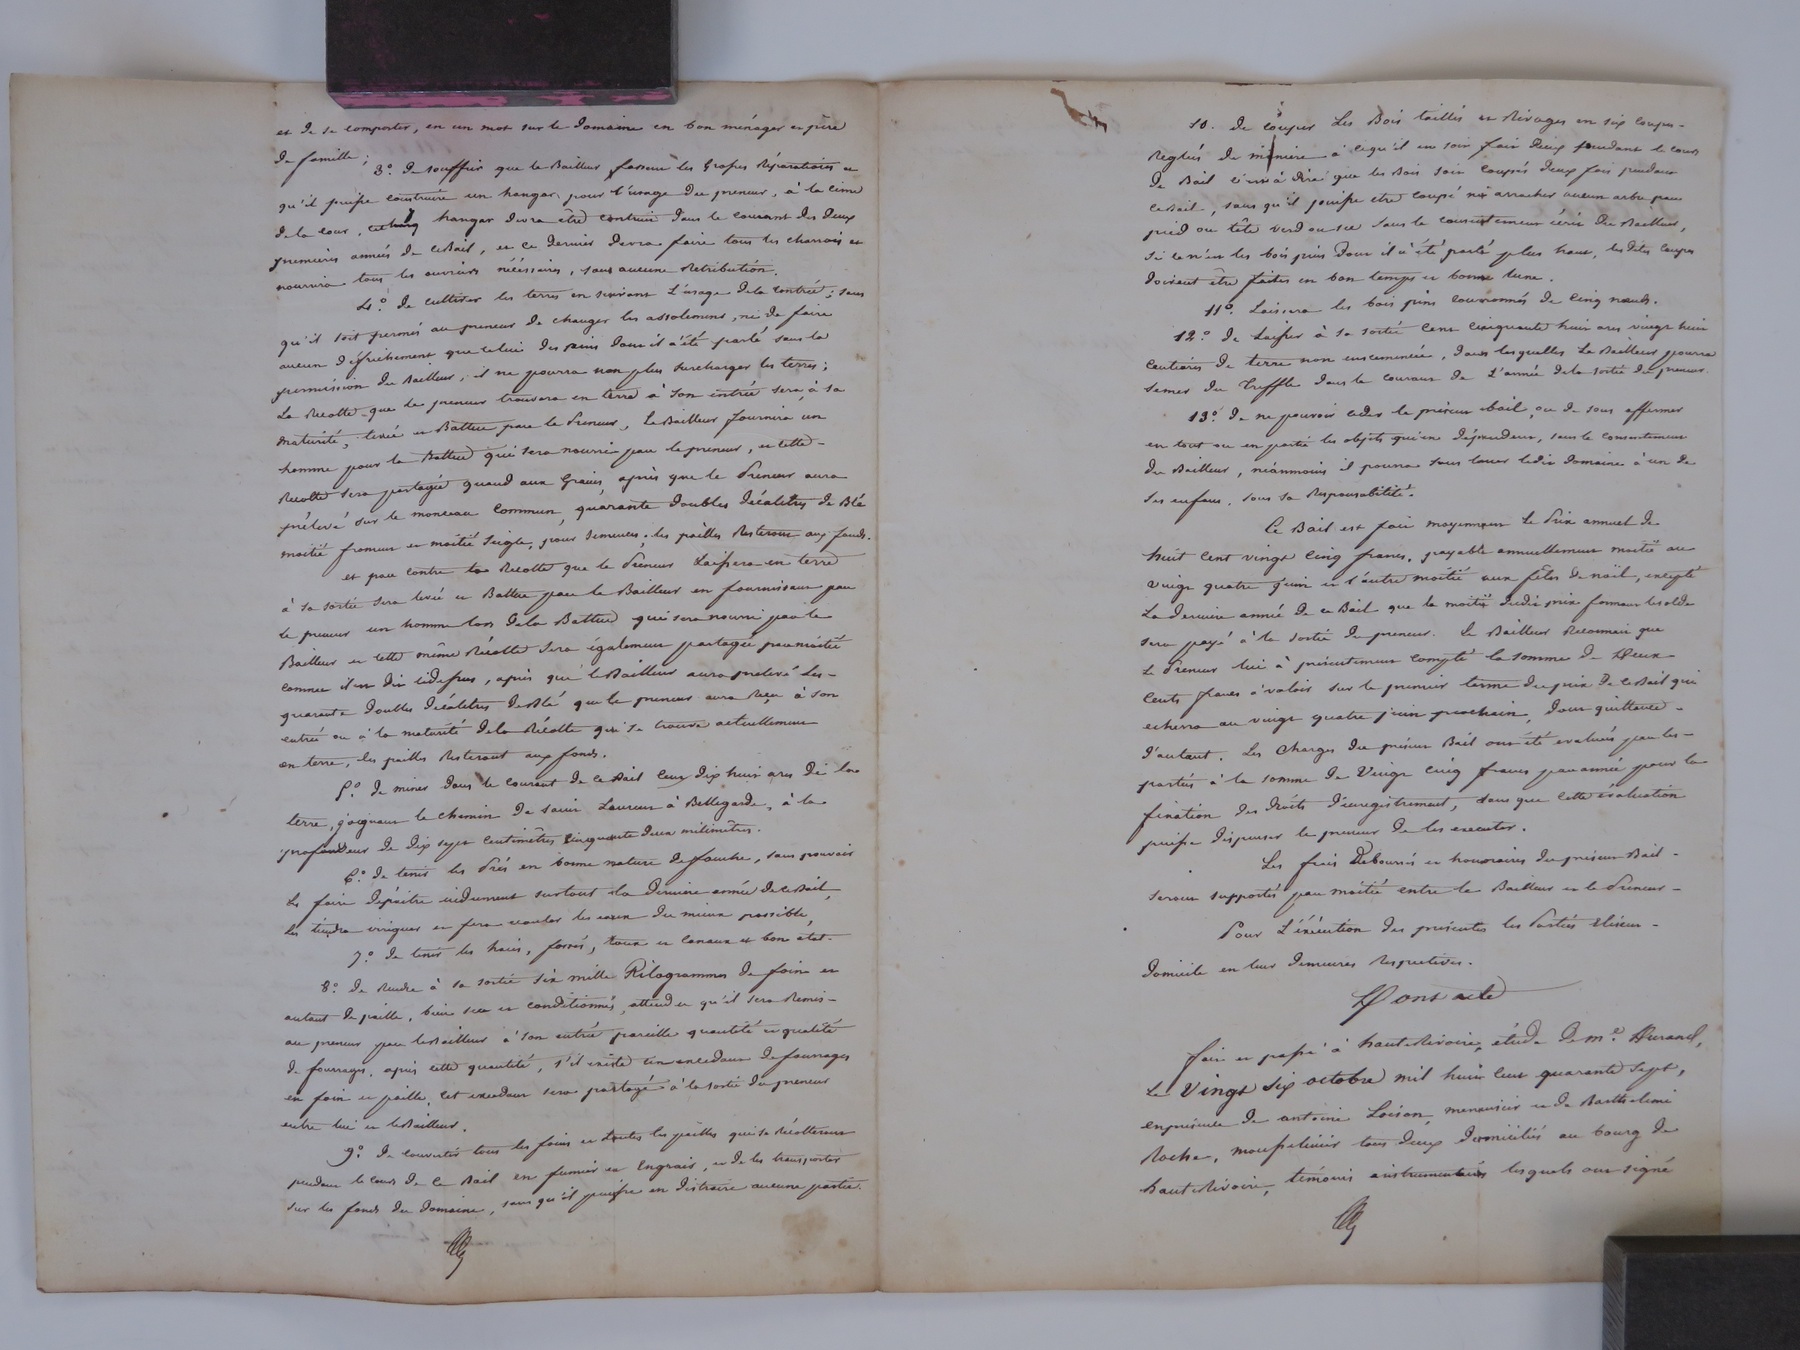 et de se comporter, en un mot sur le domaine en bon ménager et père
de famille;
3.° de souffrir que le Bailleur fasse les Grosses Réparations et
qu'il puisse construire un hangar, pour l'usage du preneur, à la cime
de la cour, hangar devra être construit dans le courant des deux
premières années de ce Bail, et ce dernier devra faire tous les charrois et
nourrira tous les ouvriers nécéssaires, sans aucune Retribution.
4.° de cultiver les terres en suivant l'usage de la contrée; sans
qu'il soit permis au preneur de changer les assolemens, ni de faire
aucun défrichement que celui des pins dont il a été parlé sans la
permission du Bailleur, il ne pourra non plus surcharger les terres;
La Recolte que le preneur trouvera en terre à son entrée sera, à sa
maturité, levée et Battue par le Preneur, Le Bailleur fournira un
homme pour la Batture qui sera nourri par le preneur, et cette
Recolte sera partagée quand aux Grains, après que le Preneur aura
prélevé sur le monceau commun, quarante doubles décalitres de Blé
moitié froment et moitié seigle, pour semences; les pailles Resteront aux fonds.
et par contre la Recolte que le Preneur Laissera en terre
à sa sortie sera levée et Battue par le Bailleur en fournissant par
le preneur un homme lors de la Batture qui sera nourri par le
Bailleur et cette même Récolte sera également partagée par moitié
comme il est dit cidessus, après que le Bailleur aura prelevé Les
quarante doubles décalitres de Blé que le preneur aura Reçu à son
entrée ou à la maturité de la Récolte qui se trouve actuellement
en terre, les pailles Resteront aux fonds.
5.° de miner dans le courant de ce Bail Cent dix huit ares de la
terre, joignant le chemin de saint Laurent à Bellegarde, à la
profondeur de dix sept centimètres Cinquante deux milimètres.
6.° de tenir les Prés en bonne nature de fauche, sans pouvoir
les faire dépaitre surtout la dernière année de ce Bail,
les tiendra irrigués et fera écouler les eaux du mieux possible,
7.° de tenir les haies, fossés, et canaux et bon état.
8.° de Rendre à sa sortie six mille Kilogrammes de foin et
autant de paille, bien sec et conditionnés, attendu qu'il sera Remis
au preneur par le Bailleur à son entrée pareille quantité et qualité
de fourrages. après cette quantité, s'il existe un excédant de fourrages
en foin et paille, cet excédant sera partagé à la sortie du preneur
entre lui et le Bailleur.
9.° de convertir tous les foins et toutes les pailles qui se Récolteront
pendant le cours de ce Bail en fumier et Engrais, et de les transporter
sur les fonds du domaine, sans qu'il puisse en distraire aucune partie.
10. de couper Les Bois taillés et Rivages en six coupes
Reglées de manière à ce qu'il en soit fait Deux pendant le cours
de Bail c'est à dire que les Bois soit coupés deux fois pendant
ce Bail, sans qu'il puisse etre coupé ni arracher aucun arbre par
pied ou tête verd ou sec sans le consentement écrit du Bailleur,
si ce n'est les bois pins dont il a été parlé plus haut, les dites Coupes
doivent être faites en bon temps et bonne lune.
11.° Laissera les bois pins couronnés de cinq nœuds.
12.° de Laisser à sa sortie Cent Cinquante huit ares vingt huit
Centiares de terre non ensemencée, dans lesquelles Le Bailleur pourra
semer du Treffle dans le courant de L'année de la sortie du preneur.
13.° de ne pouvoir céder le présent bail, ou de sous affermer
en tout ou en partie les objets qui en dépendent, sans le consentement
du Bailleur, néanmoins il pourra sous louer ledit domaine à un de
ses enfans, sous sa Responsabilité.
Ce Bail est fait moyennant Le Prix annuel de
huit Cent vingt cinq francs, payable annuellement moitié au
vingt quatre juin et l'autre moitié aux fêtes de noël, excepté
La derniere année de ce Bail que la moitié dudit prix formant le solde
sera payé à la sortie du preneur. Le Bailleur Reconnait que
Le Preneur lui à présentement compté la somme de Deux
Cents francs à valoir sur le premier terme du prix de ce Bail qui
echerra au vingt quatre juin prochain, dont quittance
d'autant. Les Charges du présent Bail ont été evalués par les
parties à la somme de Vingt Cinq francs par année pour la
fixation des droits d'enregistrement, sans que cette évaluation
puisse dispenser le preneur de les executer.
Les frais Déboursés et honoraires du présent Bail
seront supportés par moitié entre le Bailleur et le Preneur
Pour L'éxécution des présentes les Parties élisent
domicile en leur demeures Respectives.
Dont acte
fait et passé à haut-Rivoire, étude de M.e Durand,
Le Vingt six octobre mil huit cent quarante sept,
enprésence de antoine Loison, menuisier et de Barthelemi
Roche, tous deux domiciliés au bourg de
haut-Rivoire, témoins instrumentaires lesquels ont signé